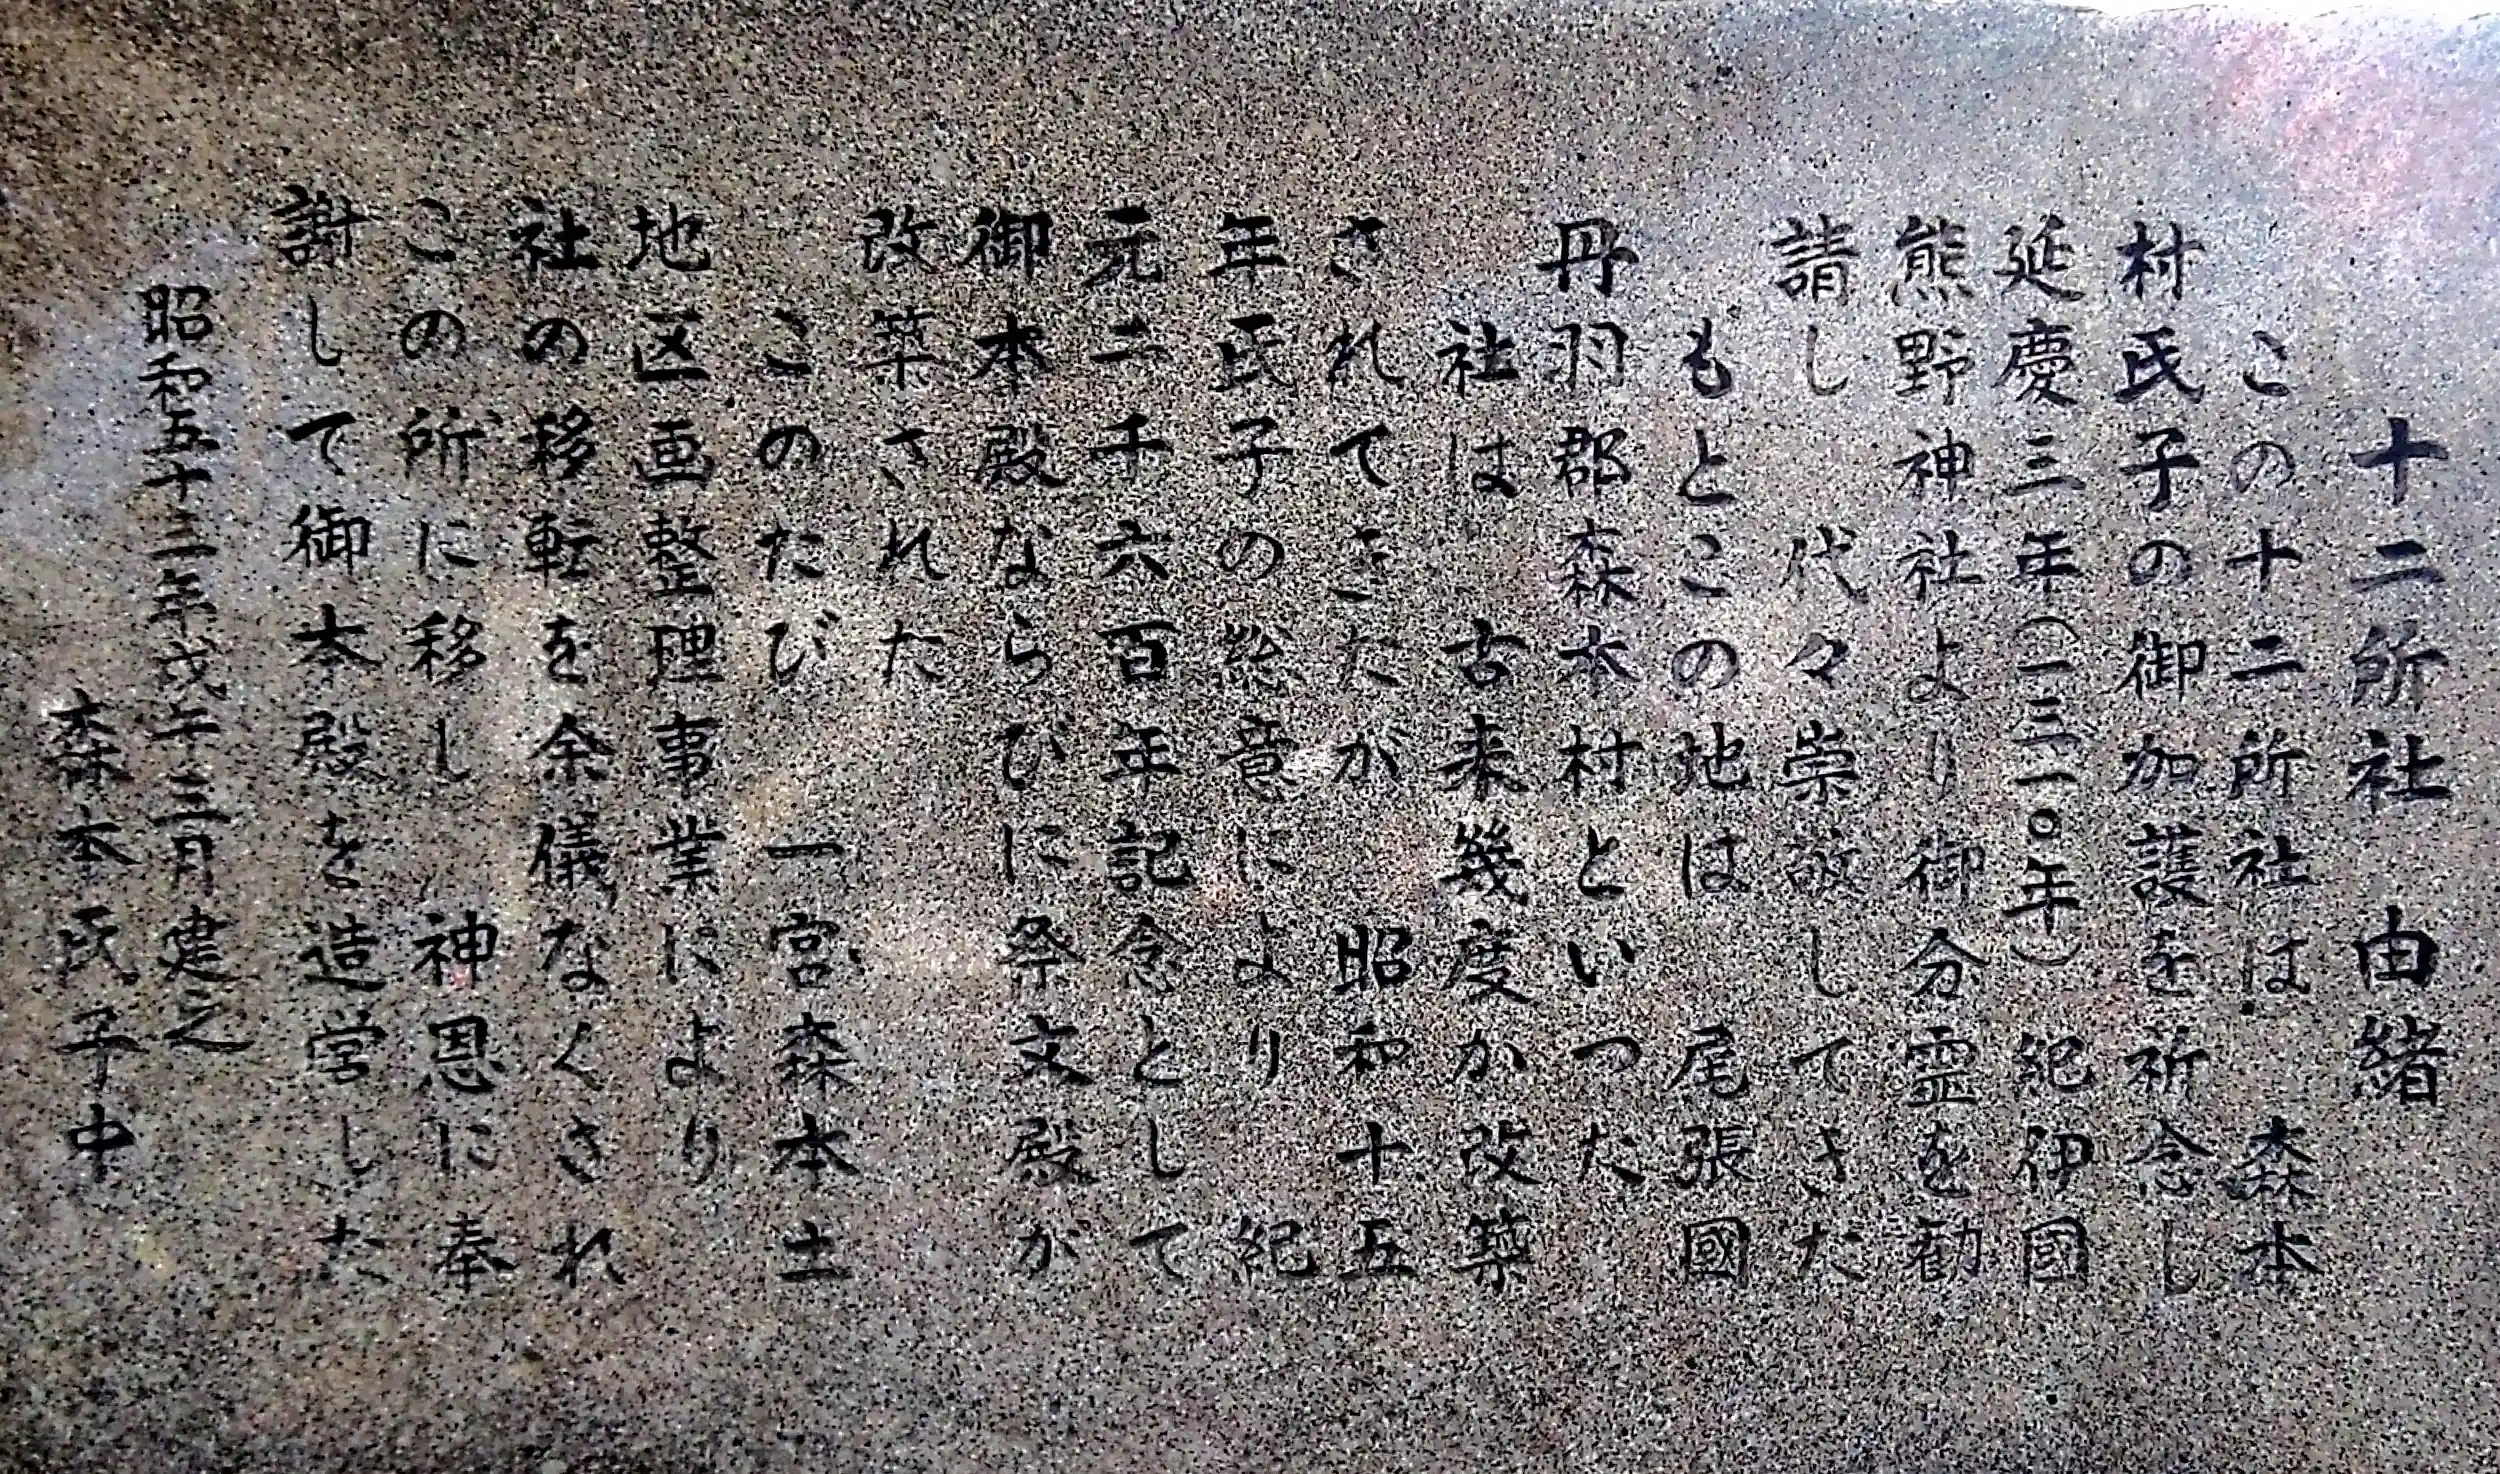 十二所社　由緒
この十二所社は　森本
村氏子の御加護を祈念し
延慶三年(一三一〇年)紀伊國
熊野神社より御分霊を勧
請し　代々崇敬してきた
もとこの地は　尾張國
丹羽郡森本村といつた
社は　古来幾度か改築
されてきたが　昭和十五
年氏子の総意により　紀
元二千六百年記念として
御本殿ならびに祭文殿が
改築された
このたび　一宮森本土
地区画整理事業により
社の移転を余儀なくされ
この所に移し　神恩に奉
謝して御本殿を造営した
昭和五十三年戊午三月建之
森本氏子中